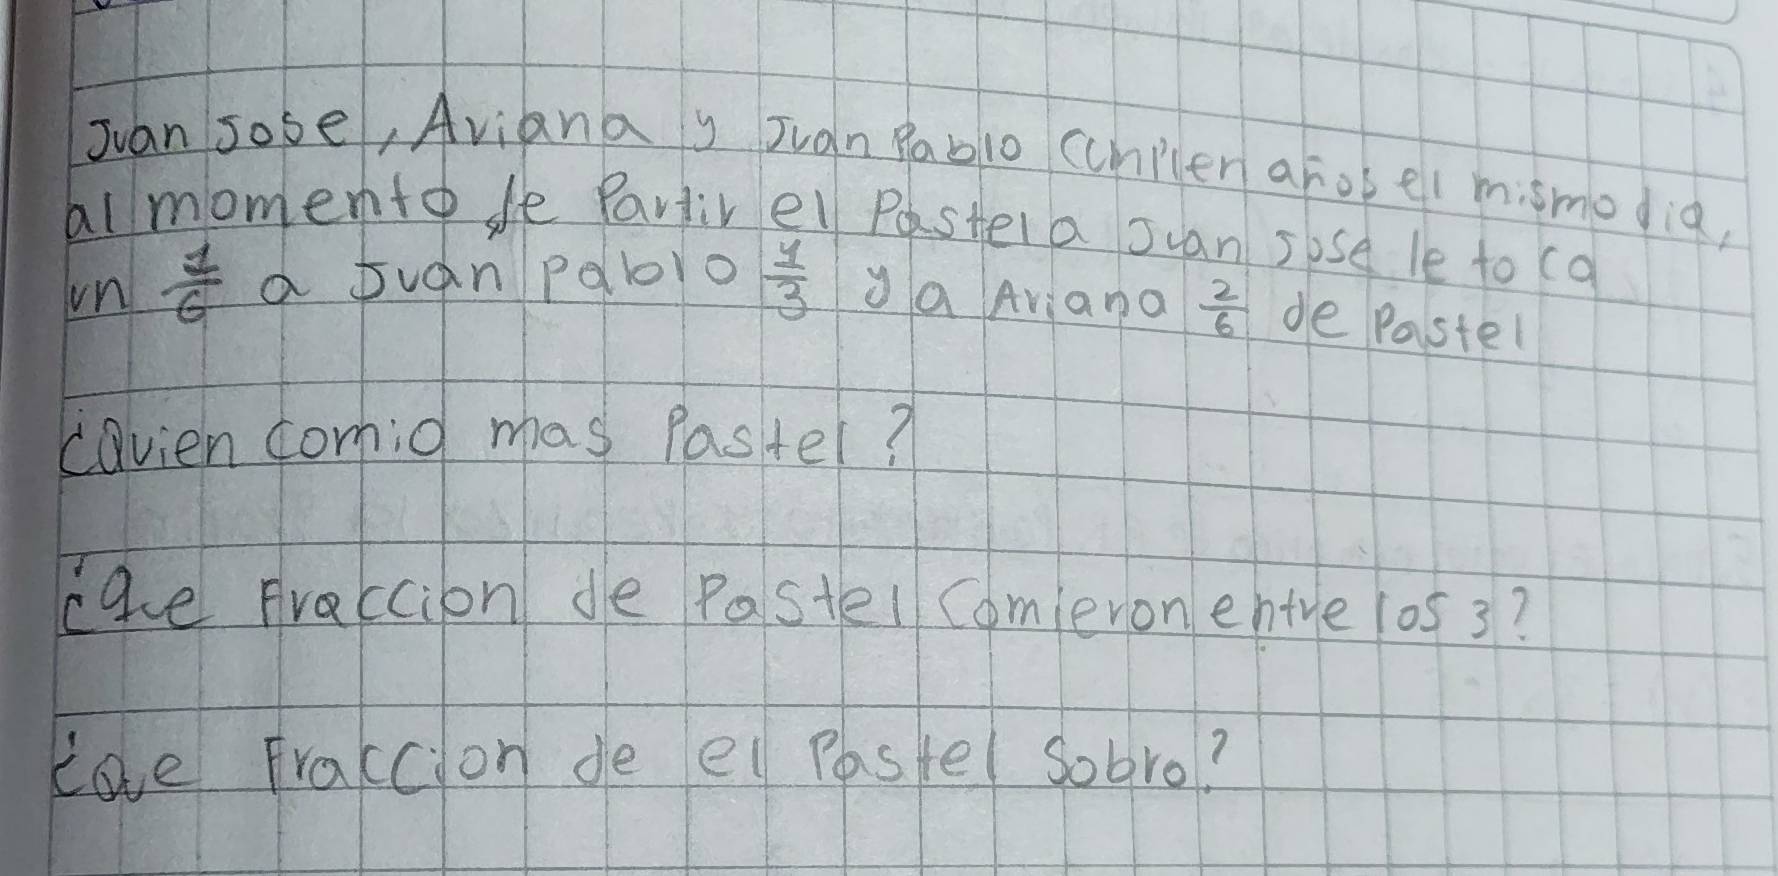 Juan Jose, Ariana y Juan Pablo cumplen años el mismo dia,
al momento de Partir el Pastel a Juan Jose le toca
un 1/6 a Juan pablo 1/3 y a Ariana 2/6 de Pastel
¿Quien comio mas Pastel?
¿Que Fraccion de Pastel Comieron entre los 3?
¿Que Fraccion de el Pastel Sobro?